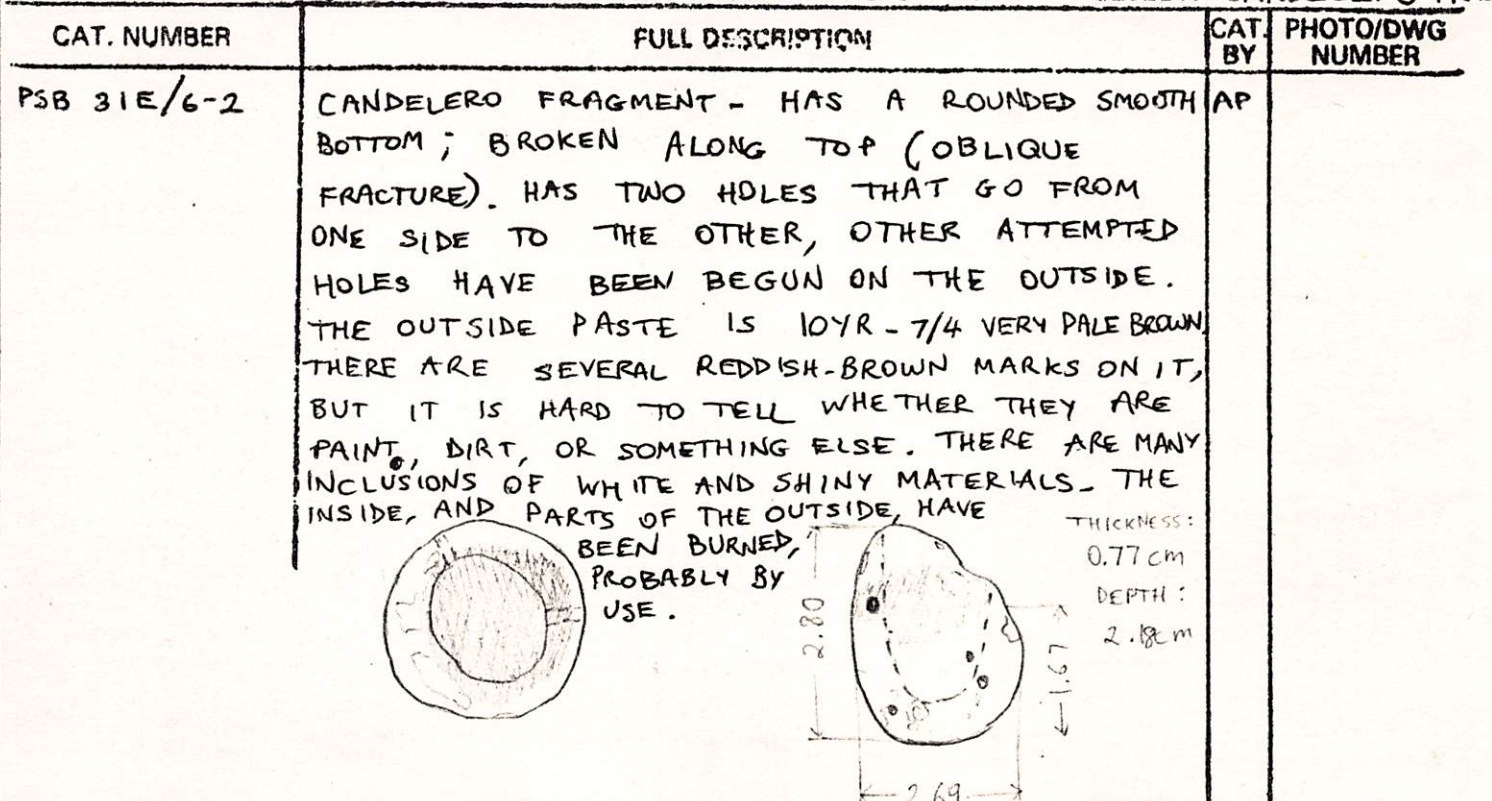 CAT. NUMBER
FULL DESCRIPTION
CAT. BY
PHOTO/DWG NUMBER
PSB 31E/6-2
CANDELERO FRAGMENT - HAS A ROUNDED SMOOTH
BOTTOM; BROKEN ALONG TOP (OBLIQUE
FRACTURE). HAS TWO HOLES THAT GO FROM
ONE SIDE TO THE OTHER, OTHER ATTEMPTED
HOLES HAVE BEEN BEGUN ON THE OUTSIDE.
THE OUTSIDE PASTE IS 10YR - 7/4 VERY PALE BROWN
THERE ARE SEVERAL REDDISH-BROWN MARKS ON IT,
BUT IT IS HARD TO TELL WHETHER THEY ARE
PAINT, DIRT, OR SOMETHING ELSE. THERE ARE MANY
INCLUSIONS OF WHITE AND SHINY MATERIALS. THE
INSIDE, AND PARTS OF THE OUTSIDE, HAVE
BEEN BURNED,
PROBABLY BY
USE.
AP
THICKNESS:
0.77 cm
DEPTH:
2.18cm
2.80
1.67
2.69